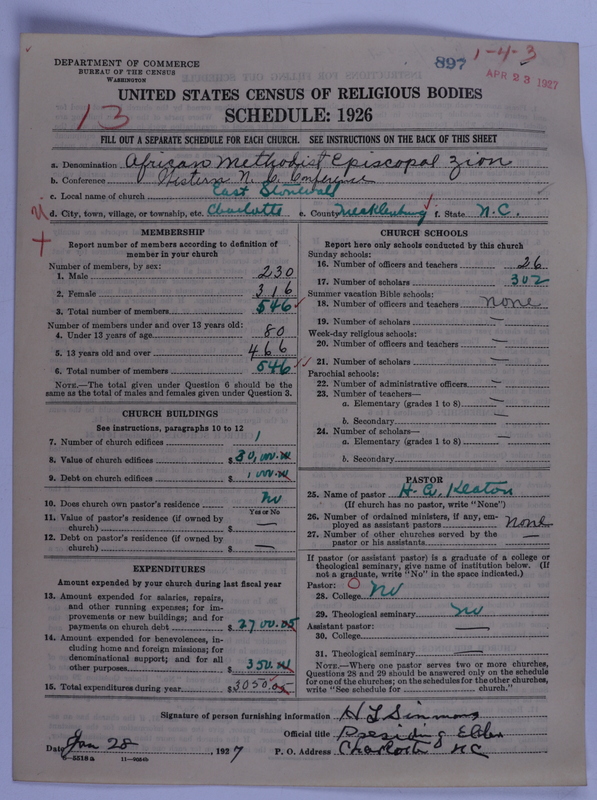 DEPARTMENT OF COMMERCE
BUREAU OF THE CENSUS
WASHINGTON
897
1-4-3
APR 23 1927
UNITED STATES CENSUS OF RELIGIOUS BODIES
13
SCHEDULE: 1926
FILL OUT A SEPARATE SCHEDULE FOR EACH CHURCH. SEE INSTRUCTIONS ON THE BACK OF THIS SHEET
a. Denomination African Methodist Episcopal Zion
b. Conference Western N. C. Conference
c. Local name of church East Stonewall
d. City, town, village, or township, etc. Charlotte e. County Mecklenburg f. State N.C.
MEMBERSHIP
Report number of members according to definition of
member in your church
Number of members, by sex:
1. Male 230
2. Female 316
3. Total number of members 546
Number of members under and over 13 years old:
4. Under 13 years of age 80
5. 13 years old and over 466
6. Total number of members 546
NOTE.—The total given under Question 6 should be
same as the total of males and females given under Question 3.
CHURCH BUILDINGS
See instructions, paragraphs 10 to 12
7. Number of church edifices 1
8. Value of church edifices $ 30,000.00
9. Debt on church edifices $ 1000.00
10. Does church own pastor's residence No
Yes or No
11. Value of pastor's residence (if owned by
church) $ —
12. Debt on pastor's residence (if owned by
church) $ —
EXPENDITURES
Amount expended by your church during last fiscal year
13. Amount expended for salaries, repairs,
and other running expenses; for im-
provements or new buildings; and for
payments on church debt $ 2700.05
14. Amount expended for benevolences, in-
cluding home and foreign missions; for
denominational support; and for all
other purposes $ 350.00
15. Total expenditures during year $ 3050.05
CHURCH SCHOOLS
Report here only schools conducted by this church
Sunday schools:
16. Number of officers and teachers 26
17. Number of scholars 302
Summer vacation Bible schools:
18. Number of officers and teachers none
19. Number of scholars —
Week-day religious schools:
20. Number of officers and teachers —
21. Number of scholars —
Parochial schools:
22. Number of administrative officers —
23. Number of teachers—
a. Elementary (grades 1 to 8) —
b. Secondary
24. Number of scholars—
a. Elementary (grades 1 to 8) —
b. Secondary
PASTOR
25. Name of pastor H. W. Keaton
(If church has no pastor, write "None")
26. Number of ordained ministers, if any, em-
ployed as assistant pastors None
27. Number of other churches served by the
pastor or his assistants —
If pastor (or assistant pastor) is a graduate of a college or
theological seminary, give name of institution below. (If
not a graduate, write "No" in the space indicated.)
Pastor:
28. College No
29. Theological seminary No
Assistant pastor:
30. College —
31. Theological seminary —
NOTE.—Where one pastor serves two or more churches,
Questions 28 and 29 should be answered only on the schedule
for one of the churches; on the schedules for the other churches,
write "See schedule for church."
Signature of person furnishing information H L Simmons
Official title Presiding Elder
Date Jan 28, 1927 P. O. Address Charlotte N C